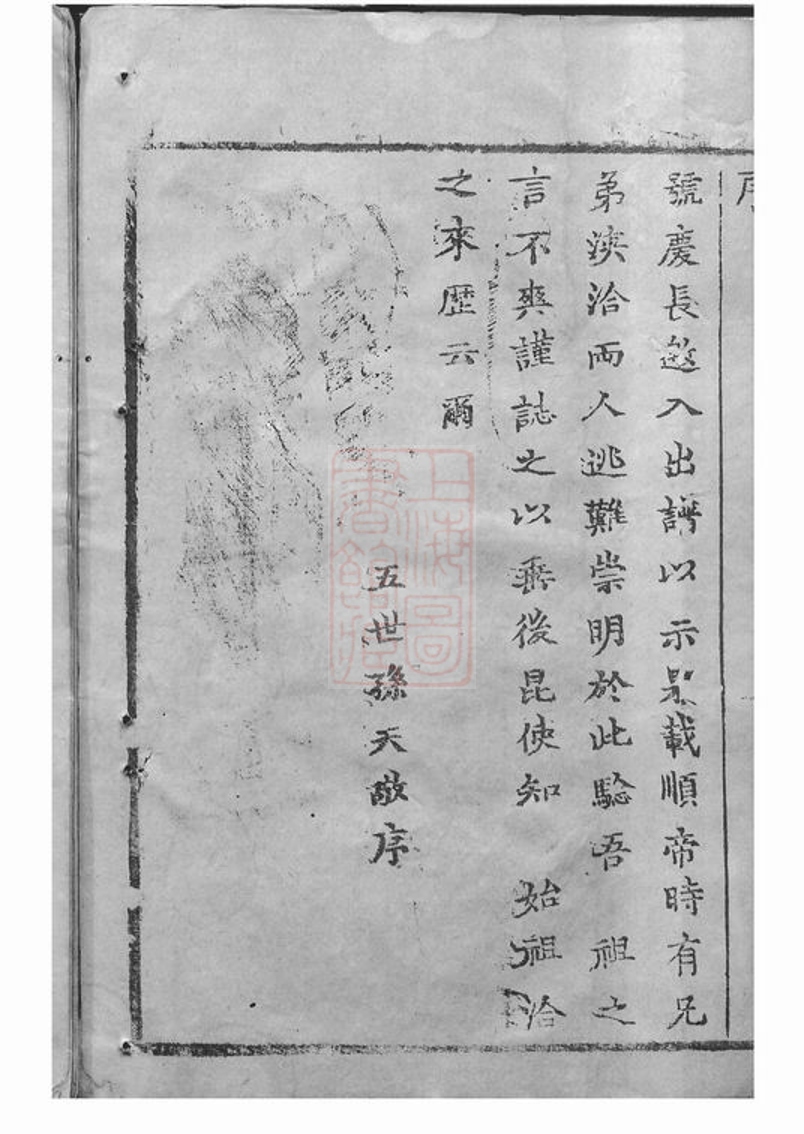 號慶長邀入出譜以示是載順帝時有兄
弟浹洽兩人逃難崇明於此驗吾 祖之
言不爽謹誌之以垂後昆使知 始祖洽
之來歷云爾
五世孫天敬序
上海圖書館藏